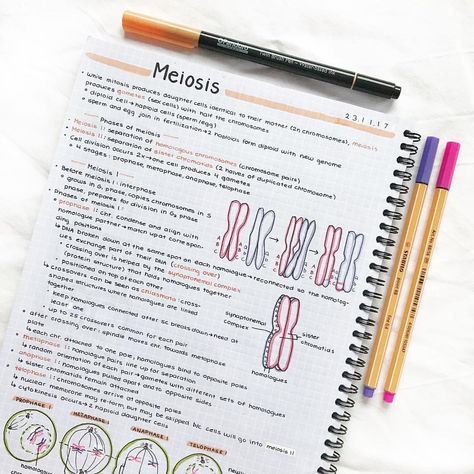 Meiosis
23.11.17
• while mitosis produces daughter cells identical to their mother (2n chromosomes), meiosis
produces gametes (sex cells) with half the chromosomes
• diploid cell → haploid cells (sperm/egg)
• sperm and egg join in fertilization → 2 haploids form diploid with new genome
Phases of meiosis
• Meiosis I: separation of homologous chromosomes (chromosome pairs)
• Meiosis II: separation of sister chromatids (2 halves of duplicated chromosome)
• Cell division occurs 2x → one cell produces 4 gametes
• 4 stages: prophase, metaphase, anaphase, telophase
Meiosis I
• Before meiosis I: interphase
• grows in G₁ phase, copies chromosomes in S
phase, prepares for division in G₂ phase
• Phases of meiosis I:
• prophase I: chr. condense and align with
homologue partner → match w/ at correspon-
ding positions
↳ DNA broken down at the same spot on each homologue → reconnected so the homolog-
ues exchange part of their DNA (crossing over)
• crossing over is helped by the synaptonemal complex
(protein structure) that holds homologues together
• positioned on top of each other
↳ crossovers can be seen as chiasmata: cross-
shaped structures where homologues are linked
together
• keep homologues connected after SC breaks down → need at
least one
• up to 25 crossovers common for each pair
• after crossing over: spindle moves chr. towards metaphase
plate
↳ each chr. attached to one pole, homologues bind to opposite poles
• metaphase I: homologue pairs line up for separation
↳ random orientation of each pair → gametes with different sets of homologues
• anaphase I: homologues pulled apart and to opposite sides
↳ sister chromatids remain attached
• telophase I: chromosomes arrive at opposite poles
↳ nuclear membrane may re-form, but may be skipped b/c cells will go into meiosis II
↳ cytokinesis occurs → 2 haploid daughter cells
synaptonemal
complex
sister
chromatids
homologues
PROPHASE I
METAPHASE I
ANAPHASE I
TELOPHASE I
STABILO